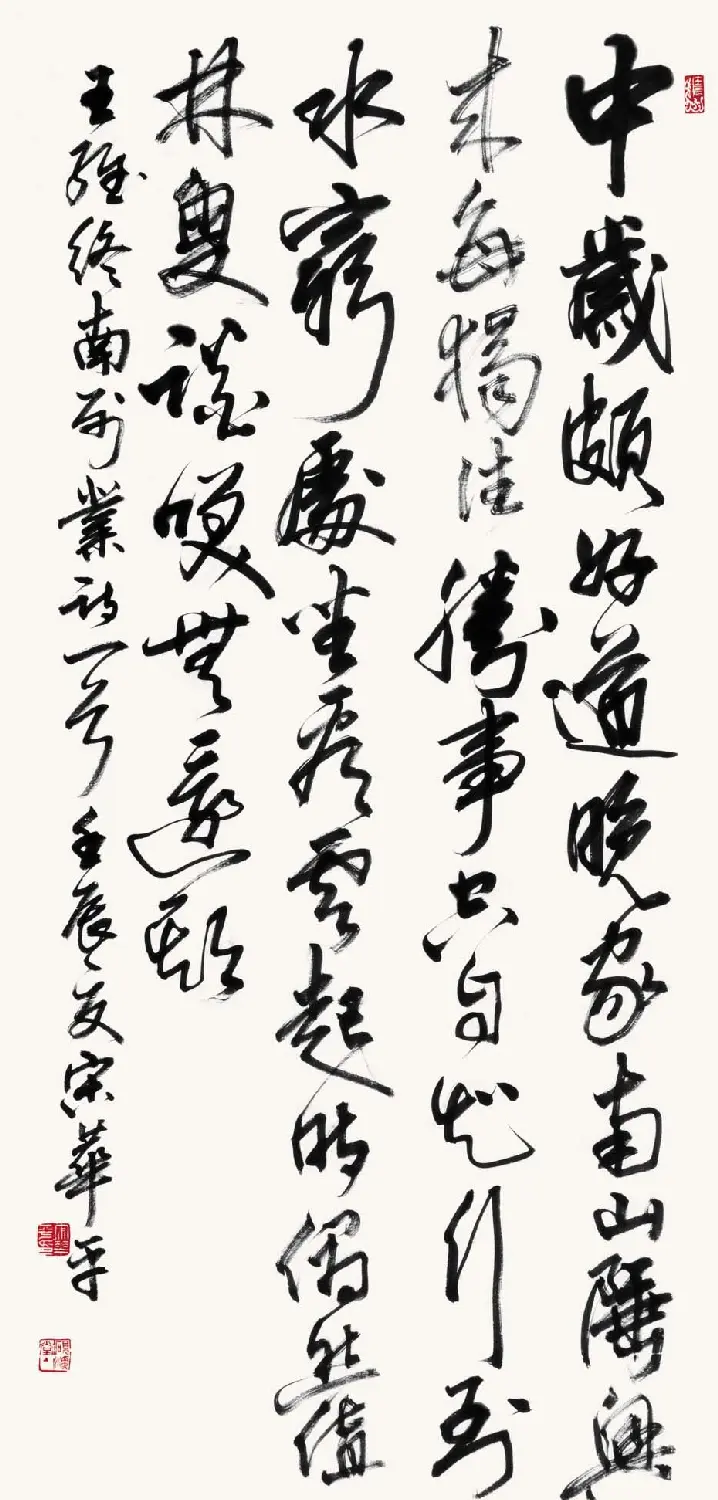 中歲頗好道晚家南山陲興
来每獨往勝事空自知行到
水窮處坐看雲起時偶然值
林叟談咲無還期
王維終南別業詩一首壬辰夏宋華平